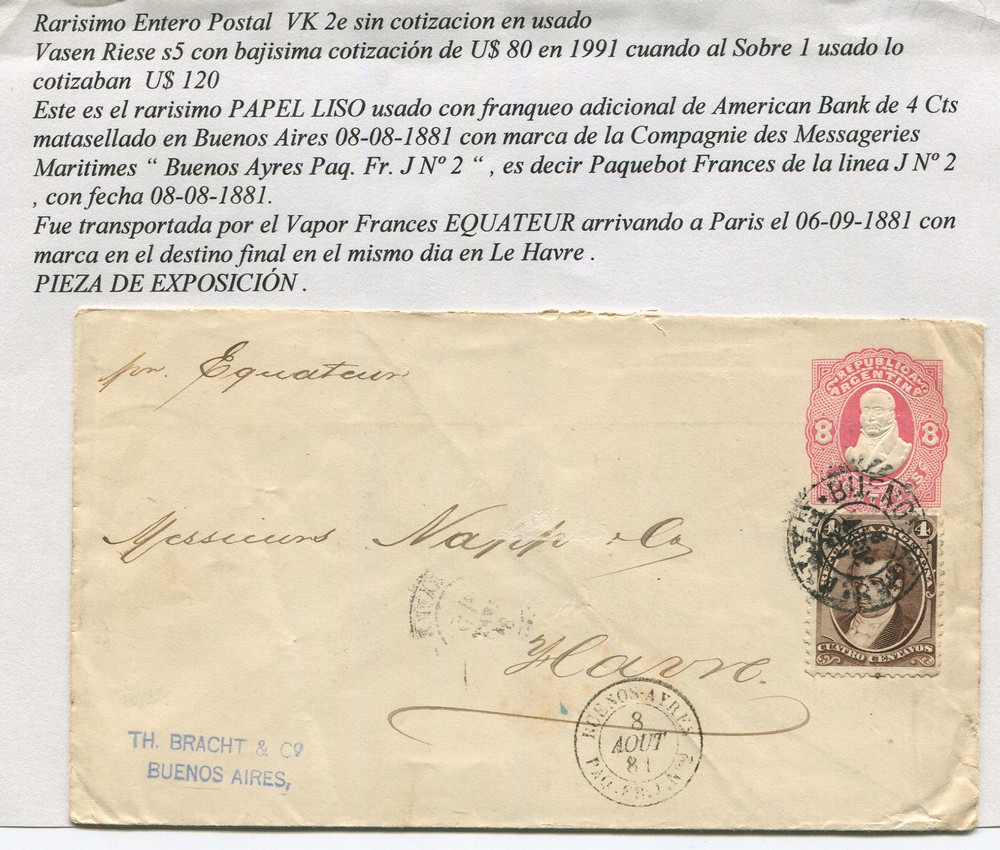 Rarisimo Entero Postal VK 2e sin cotizacion en usado
Vasen Riese s5 con bajisima cotización de U$ 80 en 1991 cuando al Sobre 1 usado lo
cotizaban U$ 120
Este es el rarisimo PAPEL LISO usado con franqueo adicional de American Bank de 4 Cts
matasellado en Buenos Aires 08-08-1881 con marca de la Compagnie des Messageries
Maritimes “ Buenos Ayres Paq. Fr. J Nº 2 “ , es decir Paquebot Frances de la linea J Nº 2
, con fecha 08-08-1881.
Fue transportada por el Vapor Frances EQUATEUR arrivando a Paris el 06-09-1881 con
marca en el destino final en el mismo dia en Le Havre .
PIEZA DE EXPOSICIÓN .
por. Equateur
REPUBLICA
ARGENTINA
8 8
BUENOS
4 4
CUATRO CENTAVOS
Messieurs Napp & Co
Havre.
BUENOS-AYRES
8
AOUT
81
PAQ. FR. J. Nº 2
TH. BRACHT & Cº
BUENOS AIRES,